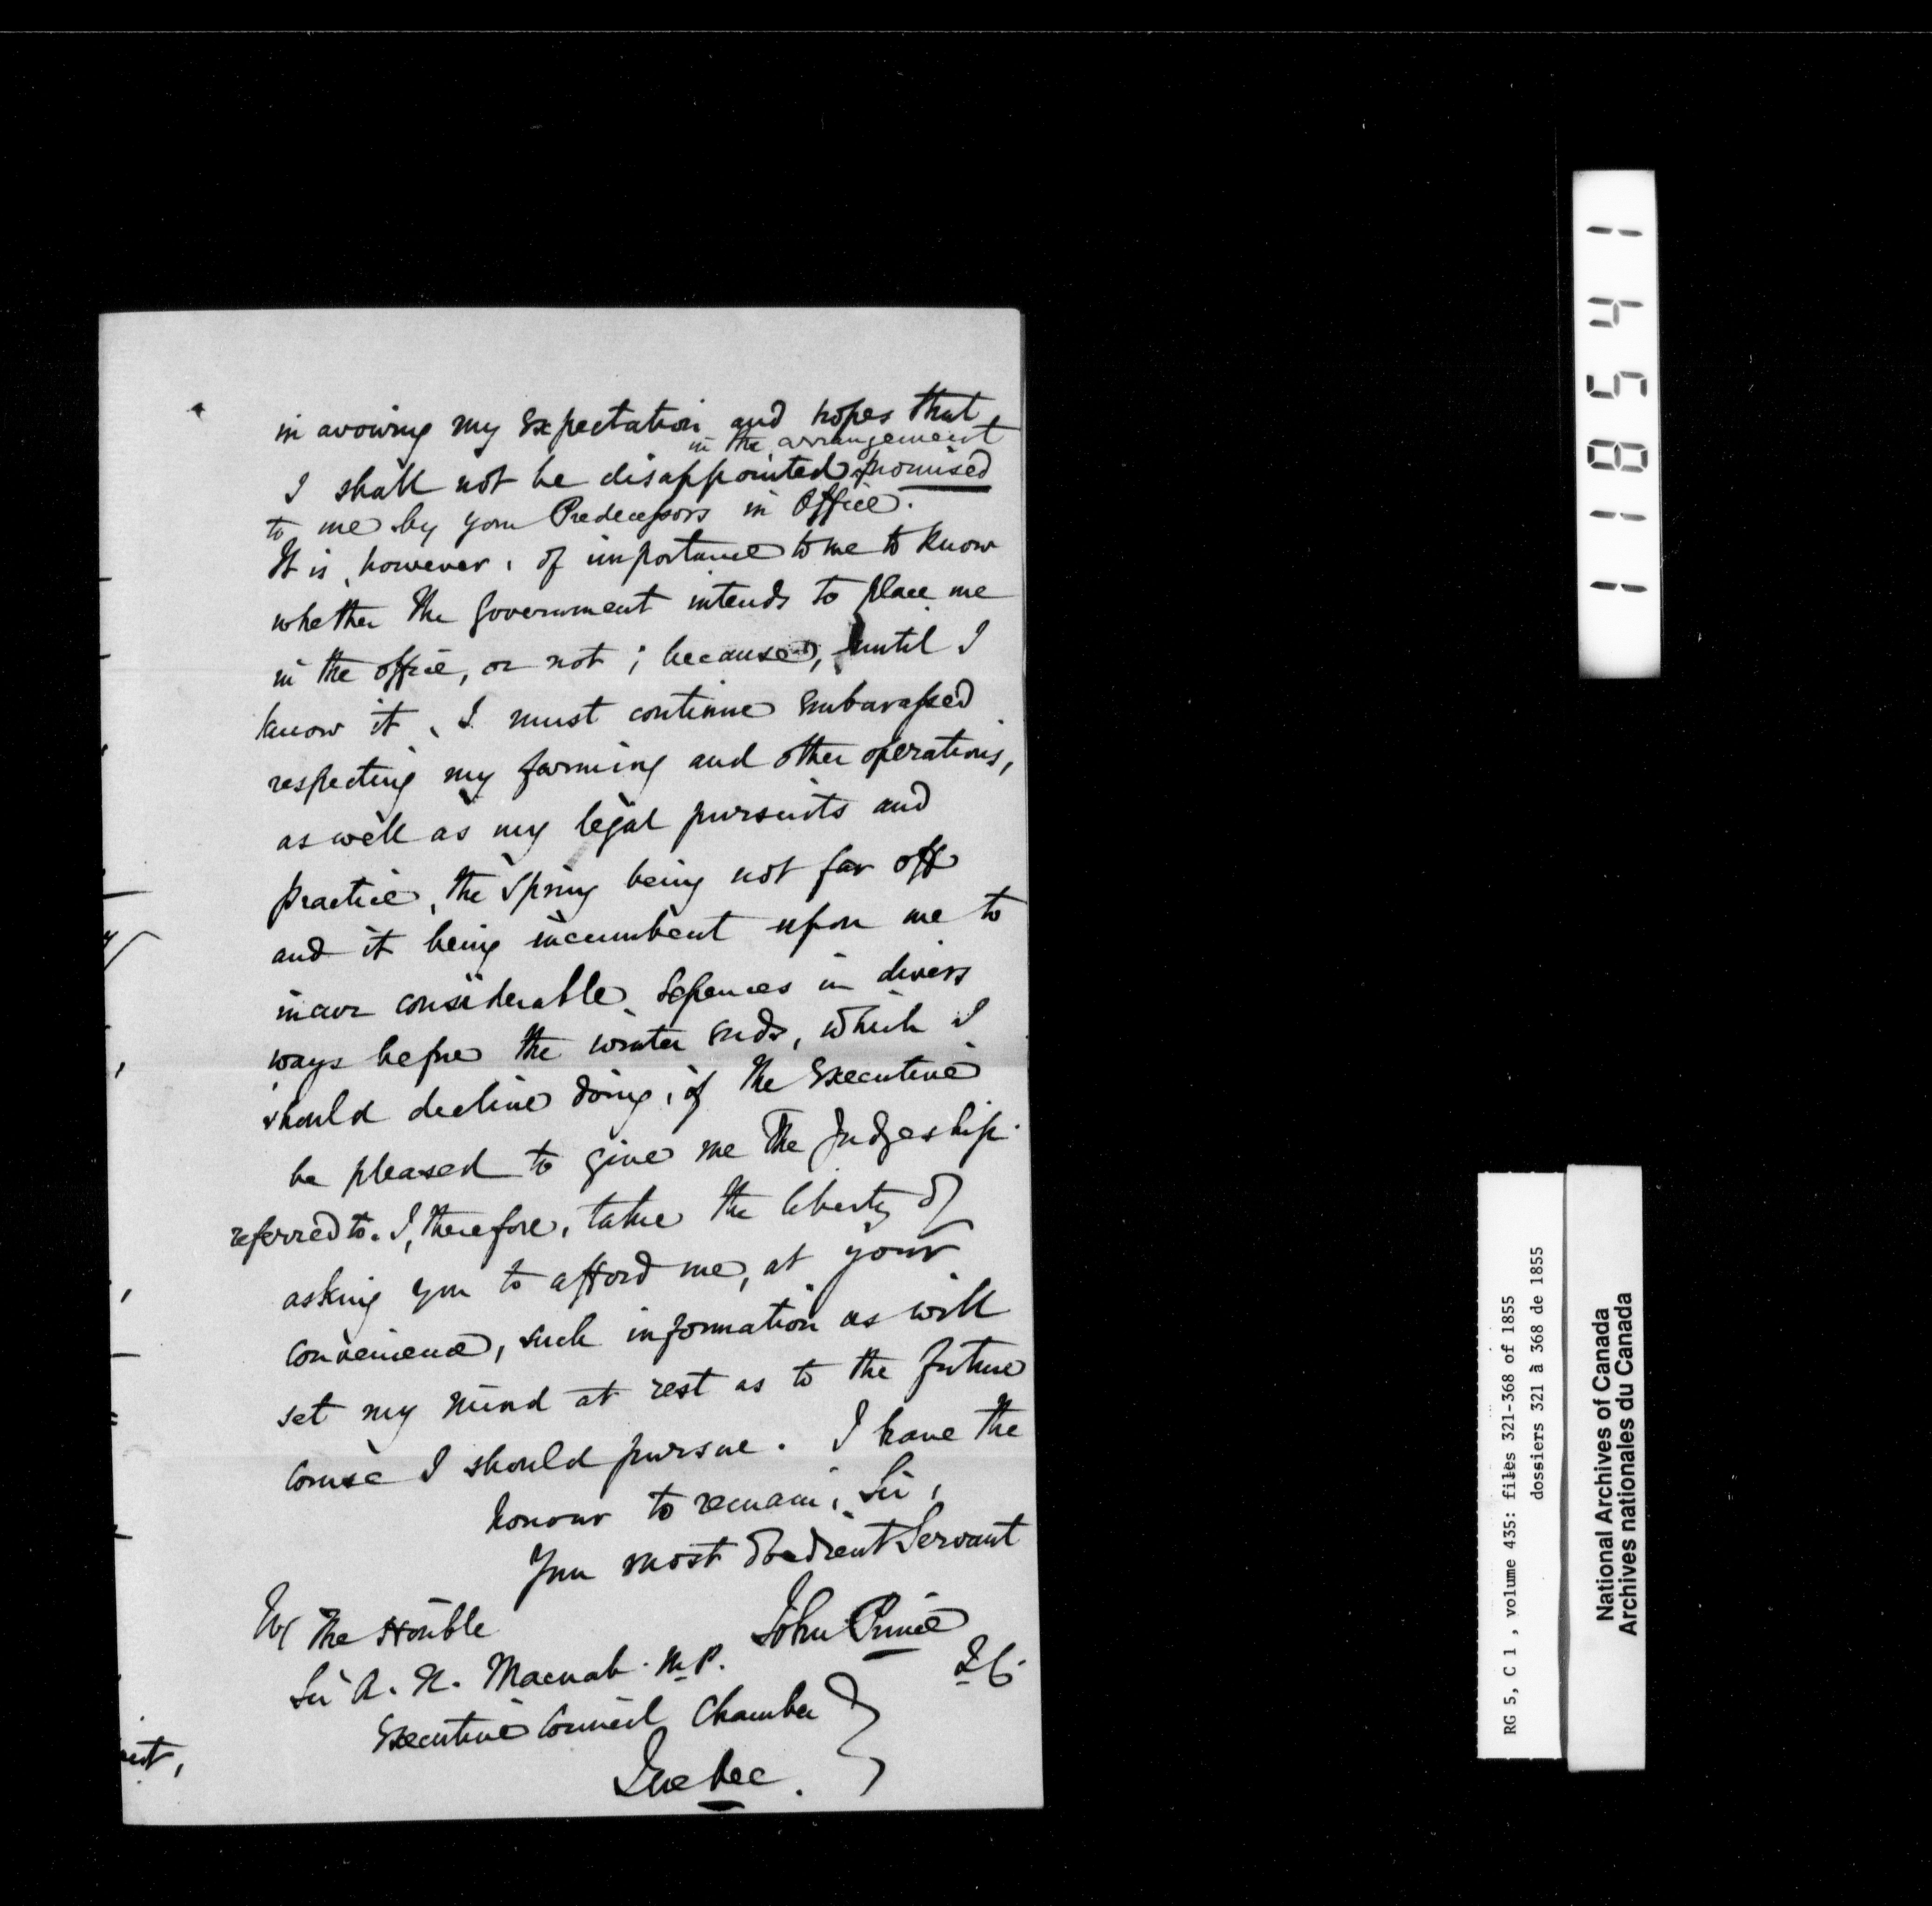 in avowing my Expectation and hopes that
in the arrangement
I shall not be disappointed promised
to me by your Predecessors in Office.
It is, however, of importance to me to know
whether the Government intends to place me
in the office, or not; because, until I
know it, I must continue Embarassed
respecting my farming and other operations,
as well as my legal pursuits and
practice, the Spring being not far off
and it being incumbent upon me to
incur considerable Expences in divers
ways before the winter Ends, which I
should decline doing, if the Executive
be pleased to give me the Judgeship
referred to. I, therefore, take the liberty of
asking you to afford me, at your
convenience, such information as will
set my mind at rest as to the future
Course I should pursue. I have the
honour to remain, Sir,
Your most Obedient Servant
John Prince
Q.C.
The Honble
Sir A. N. Macnab. M.P.
Executive Council Chamber
Quebec.
118541
RG 5, C 1 , volume 435: files 321-368 of 1855
dossiers 321 à 368 de 1855
National Archives of Canada
Archives nationales du Canada